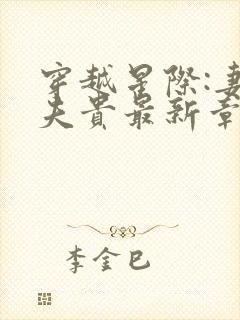 穿越星际:妻
夫贵最新章
李金巳